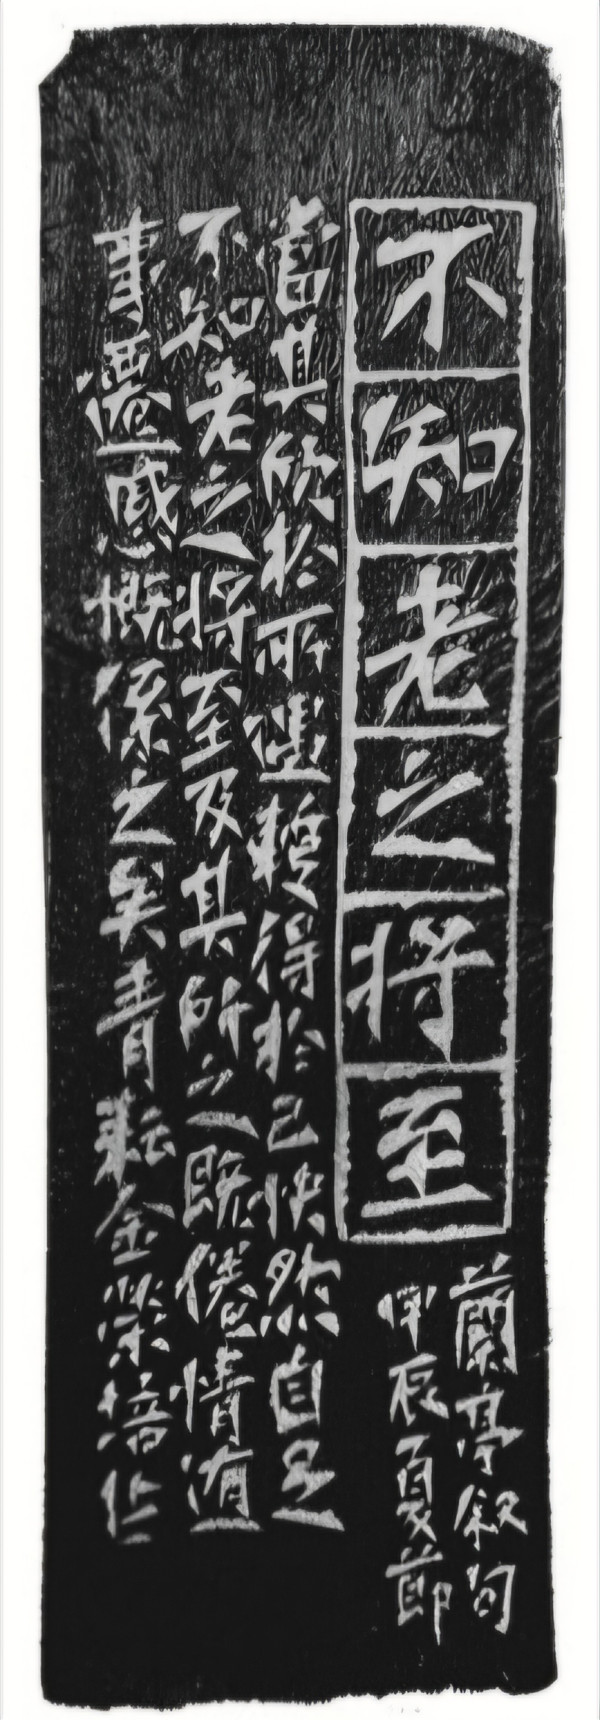 不知老之將至
蘭亭叙句
甲辰夏節
當其欣於所遇輒得於己快然自足
不知老之將至及其所之既倦情随
事遷感慨係之矣青耘金榮培作